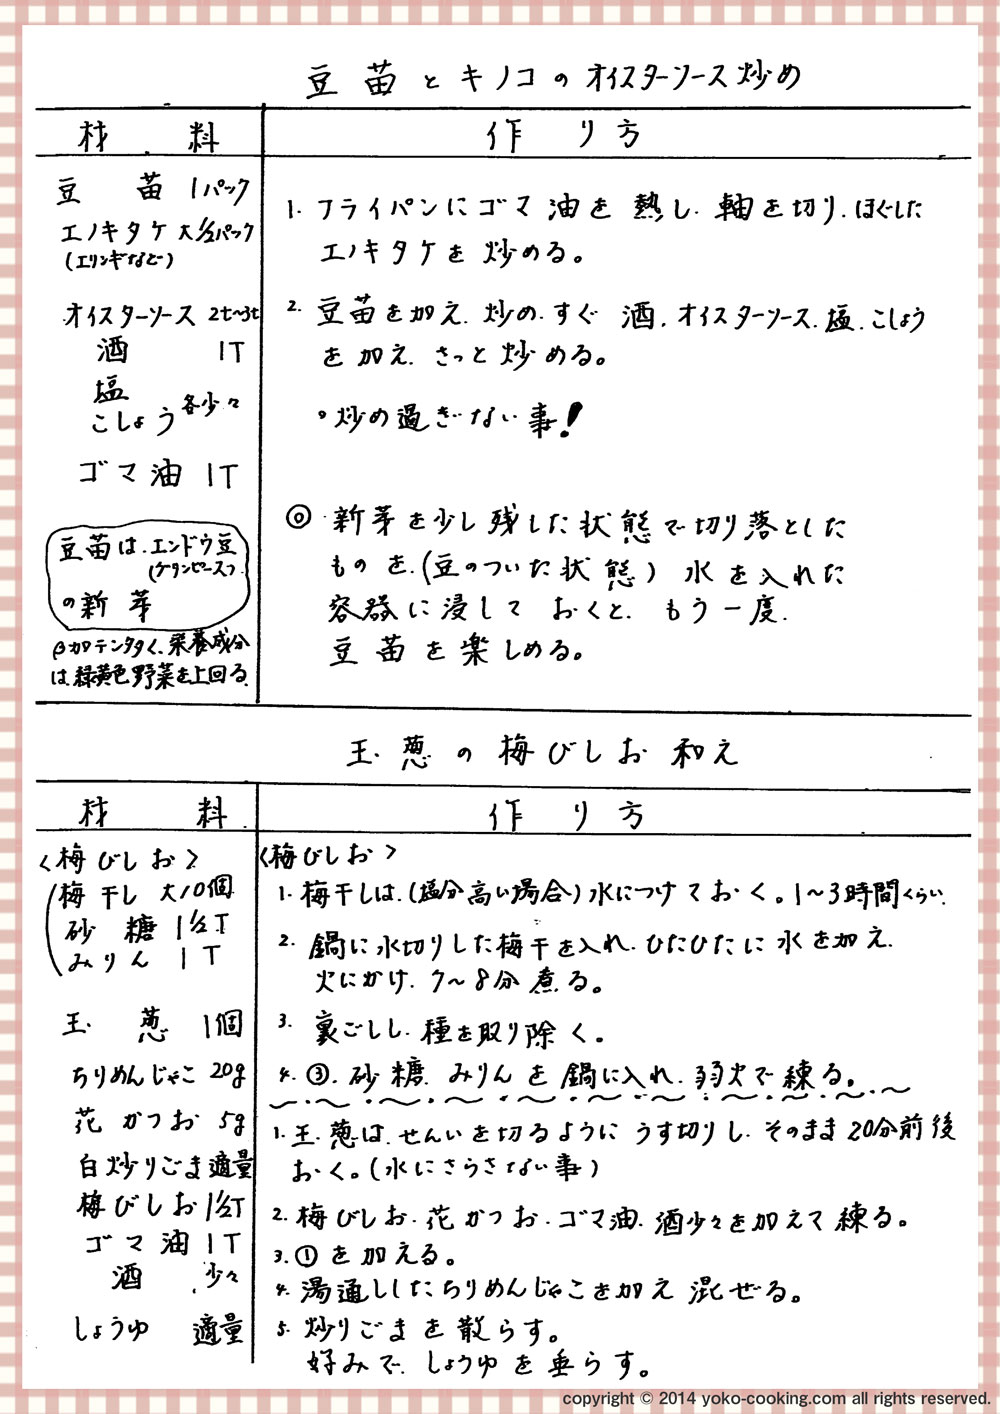 豆苗とキノコのオイスターソース炒め
材料
作り方
豆苗 1パック
エノキタケ 大1/2パック
(エリンギなど)
オイスターソース 2t〜3t
酒 1T
塩
こしょう 各少々
ゴマ油 1T
豆苗は、エンドウ豆
(グリンピース)
の新芽
βカロテン多く、栄養成分
は緑黄色野菜を上回る
1. フライパンにゴマ油を熱し、軸を切り、ほぐした
エノキタケを炒める。
2. 豆苗を加え、炒め、すぐ酒、オイスターソース、塩、こしょう
を加え、さっと炒める。
○炒め過ぎない事!
◎ 新芽を少し残した状態で切り落とした
ものを、(豆のついた状態) 水を入れた
容器に浸しておくと、もう一度、
豆苗を楽しめる。
玉葱の梅びしお和え
材料
作り方
〈梅びしお〉
梅干し 大10個
砂糖 1 1/2T
みりん 1T
玉葱 1個
ちりめんじゃこ 20g
花かつお 5g
白炒りごま 適量
梅びしお 1 1/2T
ゴマ油 1T
酒 少々
しょうゆ 適量
〈梅びしお〉
1. 梅干しは、(塩分高い場合) 水につけておく。1〜3時間くらい、
2. 鍋に水切りした梅干を入れ、ひたひたに水を加え、
火にかけ、7〜8分煮る。
3. 裏ごしし、種を取り除く。
4. ③、砂糖、みりんを鍋に入れ、弱火で練る。
1. 玉葱は、せんいを切るようにうす切りし、そのまま20分前後
おく。(水にさらさない事)
2. 梅びしお、花かつお、ゴマ油、酒少々を加えて練る。
3. ①を加える。
4. 湯通ししたちりめんじゃこを加え混ぜる。
5. 炒りごまを散らす。
好みで、しょうゆを垂らす。
copyright © 2014 yoko-cooking.com all rights reserved.